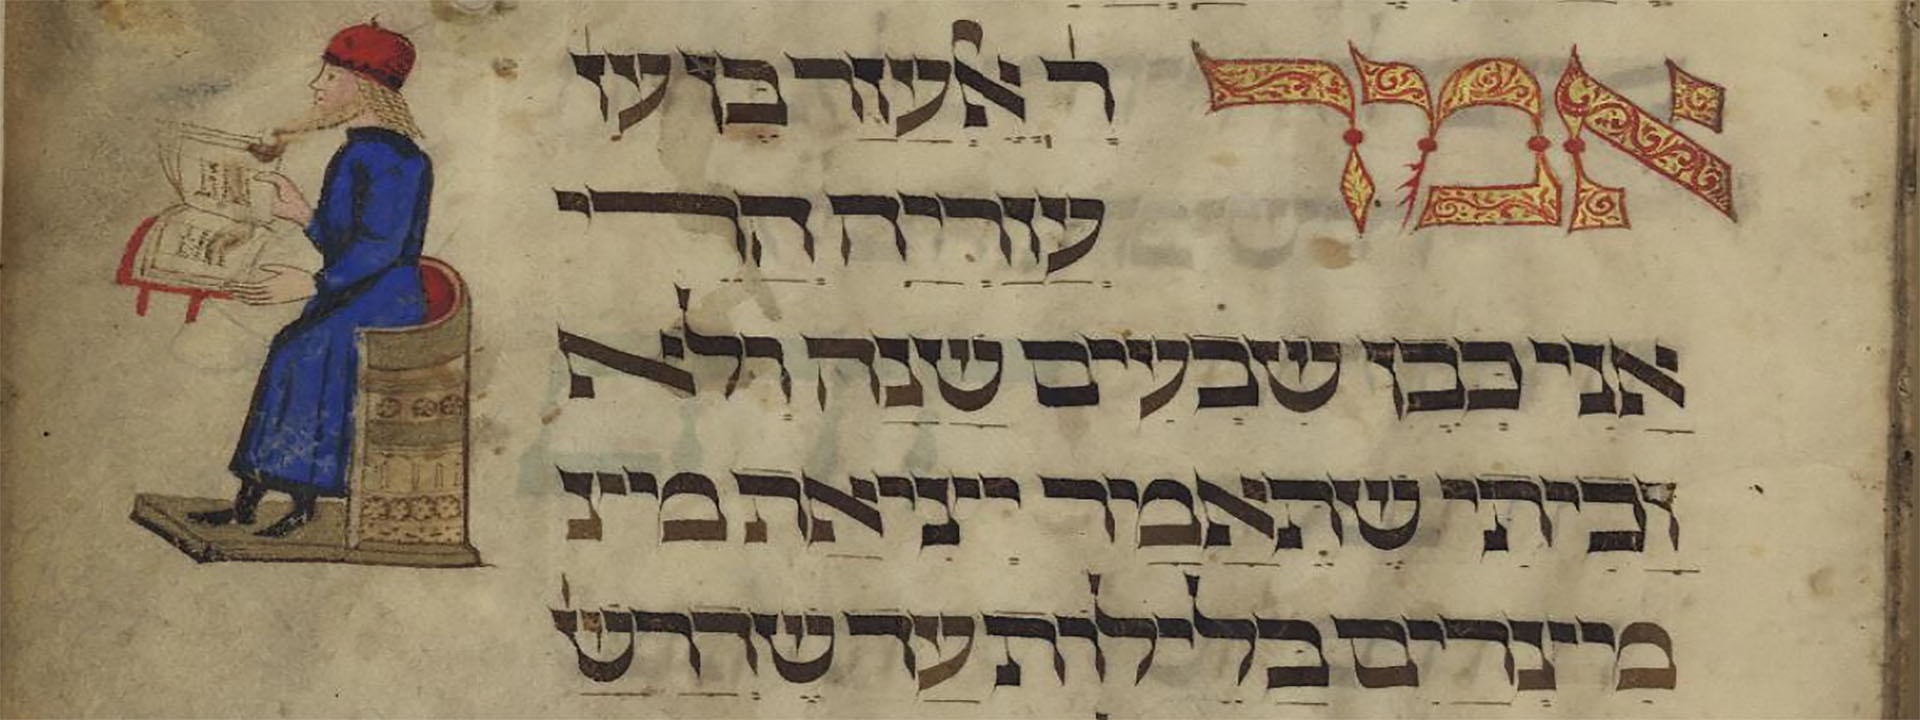 אמר ר אלעזר בן עז
עזריה הרי
אני כבן שבעים שנה ולא
זכיתי שתאמר יציאת מיצ
מיצרים בלילות עד שדרש